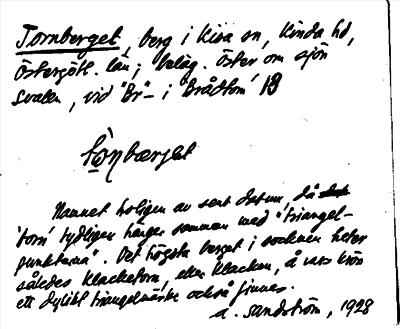 Tornberget, berg i Kisa sn, Kinda hd,
Östergötl. län; beläg. öster om sjön
Svalen, vid "Br"- i Brådtom 1B
Namnet troligen av sent datum, då
'torn' tydligen hänger samman med "triangel-
punkterna". Det högsta berget i socknen heter
således Klacketorn, eller Klacken, å vars krön
ett dylikt triangelmärke också finnes.
A. Sandström, 1928